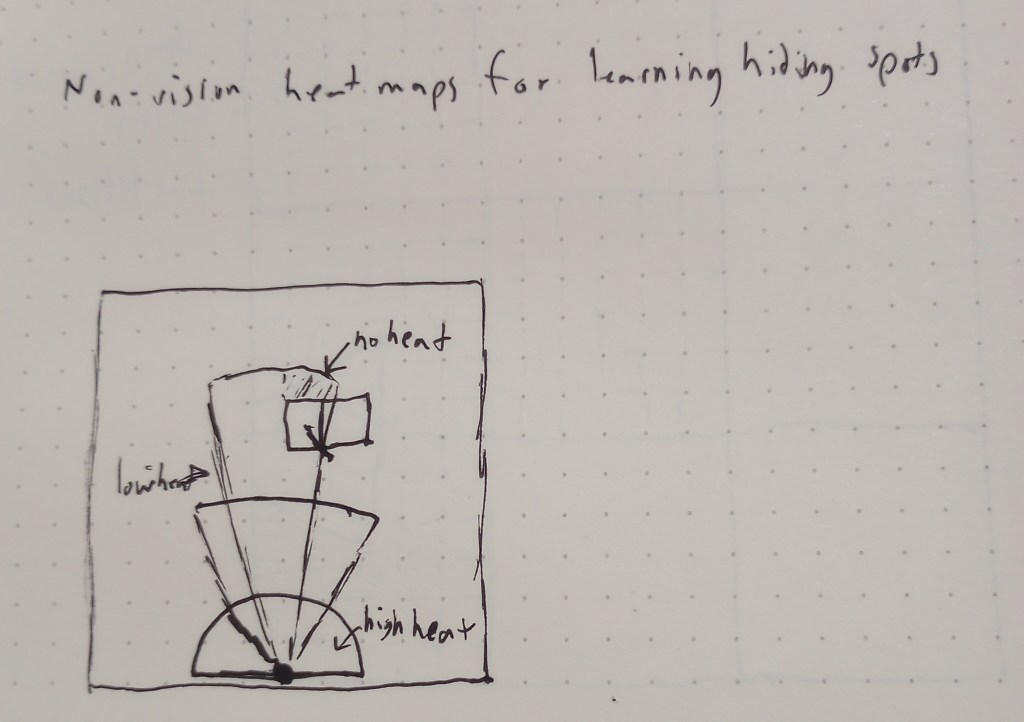 Non-vision heat maps for learning hiding spots
no heat
low heat
high heat